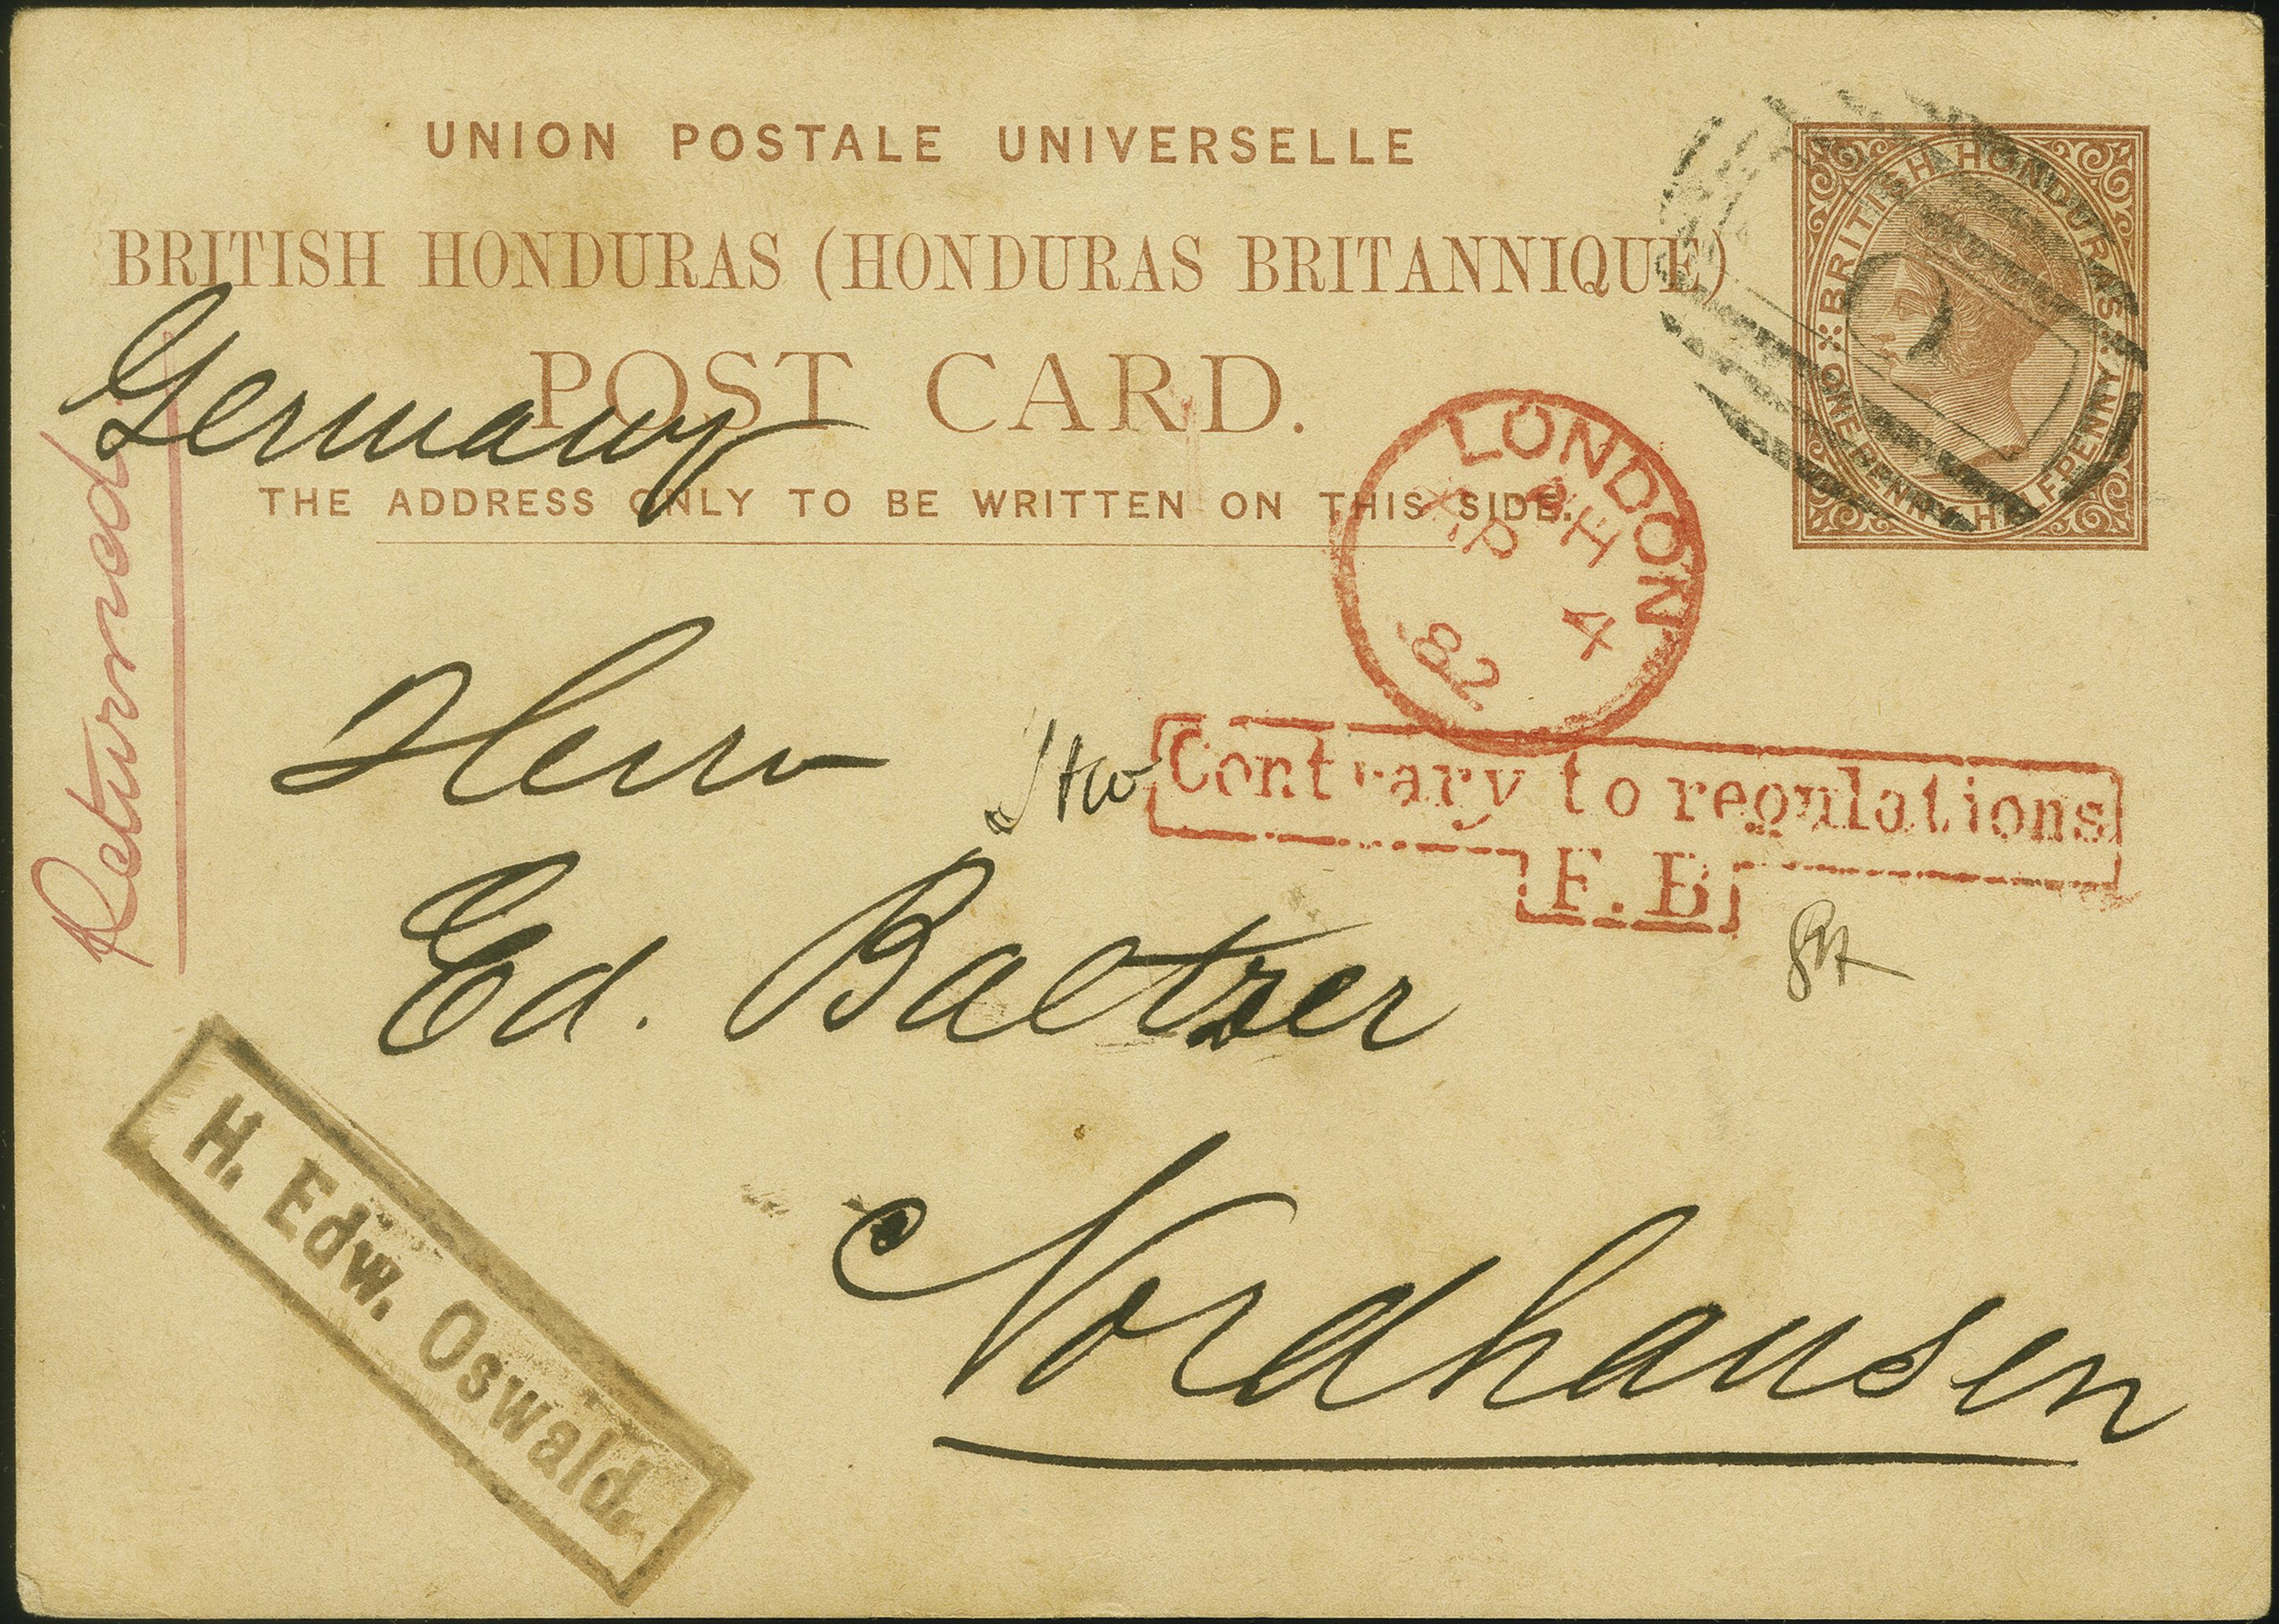 UNION POSTALE UNIVERSELLE
BRITISH HONDURAS (HONDURAS BRITANNIQUE)
POST CARD.
THE ADDRESS ONLY TO BE WRITTEN ON THIS SIDE.
BRITISH HONDURAS
ONE PENNY HALFPENNY
Germany
Returned
LONDON
AP 4
82
Herrn
Contrary to regulations
F.B
Ed. Baltzer
Nordhausen
H. Edw. Oswald.